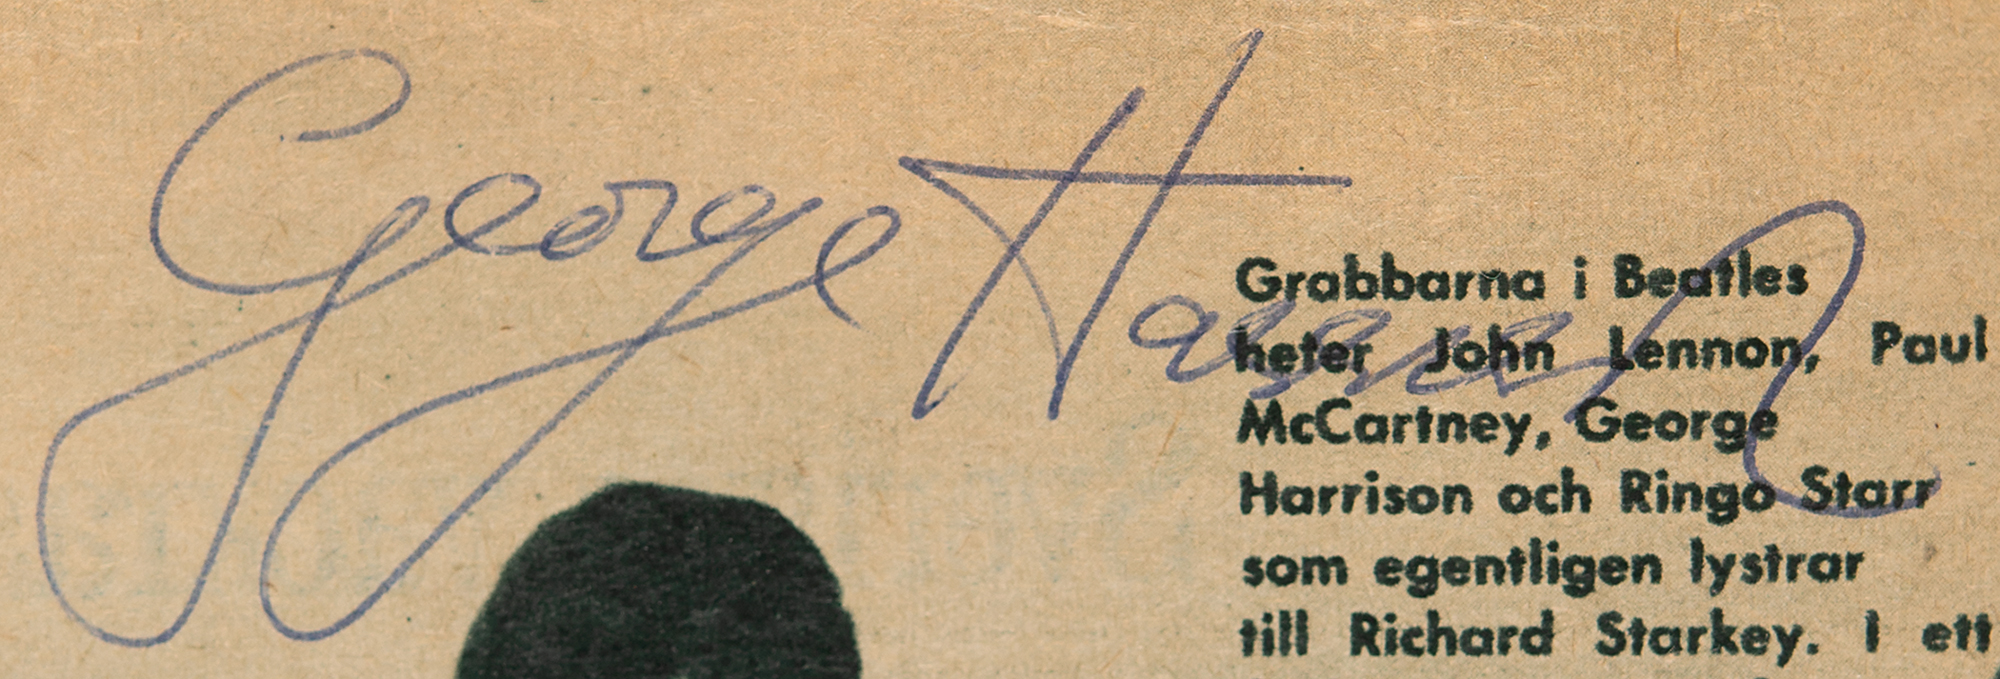 George Harrison
Grabbarna i Beatles
heter John Lennon, Paul
McCartney, George
Harrison och Ringo Starr
som egentligen lystrar
till Richard Starkey. I ett